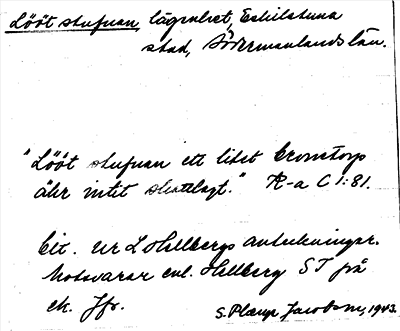 Lööt stufuan, lägenhet, Eskilstuna
stad, Södermanlands län.
"Lööt stufuan ett litet Cronetorp
ähr intet skattlagt." R-a C 1:81.
Cit. ur L Hellbergs anteckningar.
Motsvarar enl. Hellberg ST på
ek. Jfr.
S. Jacobson, 1943.